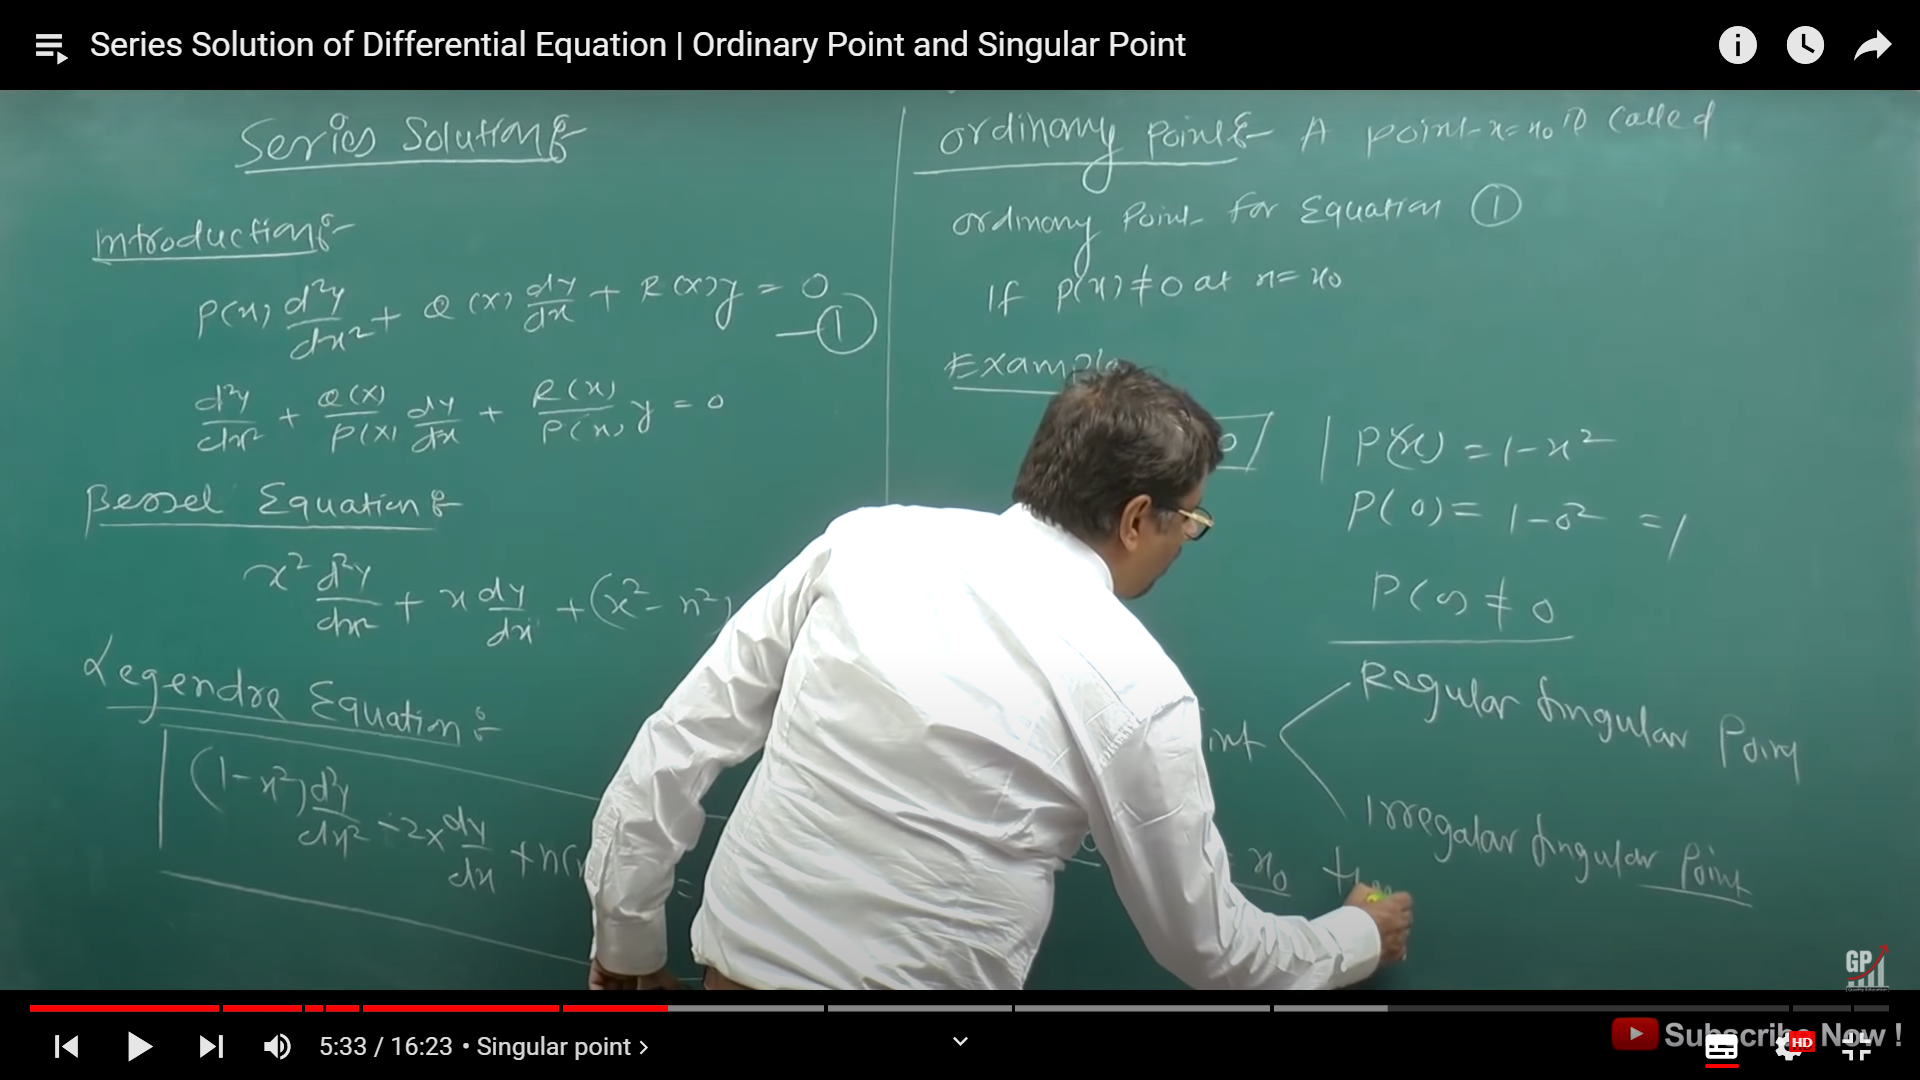 Series Solution of Differential Equation | Ordinary Point and Singular Point
Series Solution:-
Introduction:-
P(x) d²y/dx² + Q(x) dy/dx + R(x)y = 0 — ①
d²y/dx² + Q(x)/P(x) dy/dx + R(x)/P(x) y = 0
Bessel Equation:-
x² d²y/dx² + x dy/dx + (x² - n²)
Legendre Equation:-
(1-x²) d²y/dx² - 2x dy/dx + n(
=
Ordinary Point:- A point x=x₀ is called
ordinary Point for Equation ①
If P(x) ≠ 0 at x = x₀
Example
P(x) = 1-x²
P(0) = 1-0² = 1
P(0) ≠ 0
Regular Singular Point
Irregalar Singular Point
= x₀
GP
5:33 / 16:23 • Singular point
Subscribe Now !
HD